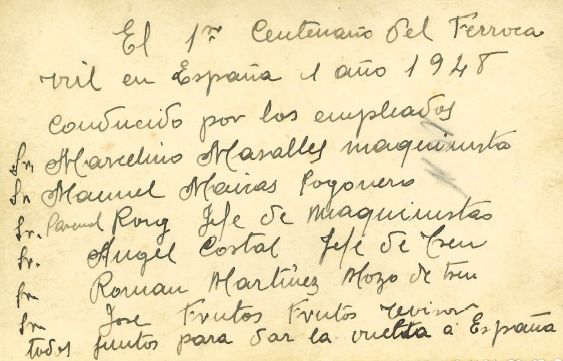 El 1er Centenario del Ferroca
rril en España 1 año 1948
conducido por los empleados
Sr. Marcelino Masalles maquinista
Sr Manuel Mairas fogonero
Sr. Pascual Roig Jefe de maquinistas
Sr. Angel Costal Jefe de tren
Sr Roman Martínez Mozo de tren
Sr Jose Frutos Frutos revisor
todos juntos para dar la vuelta a España